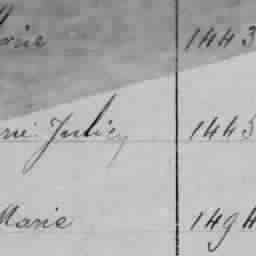 orie 1443
rie Juliey 1445
Marie 1494